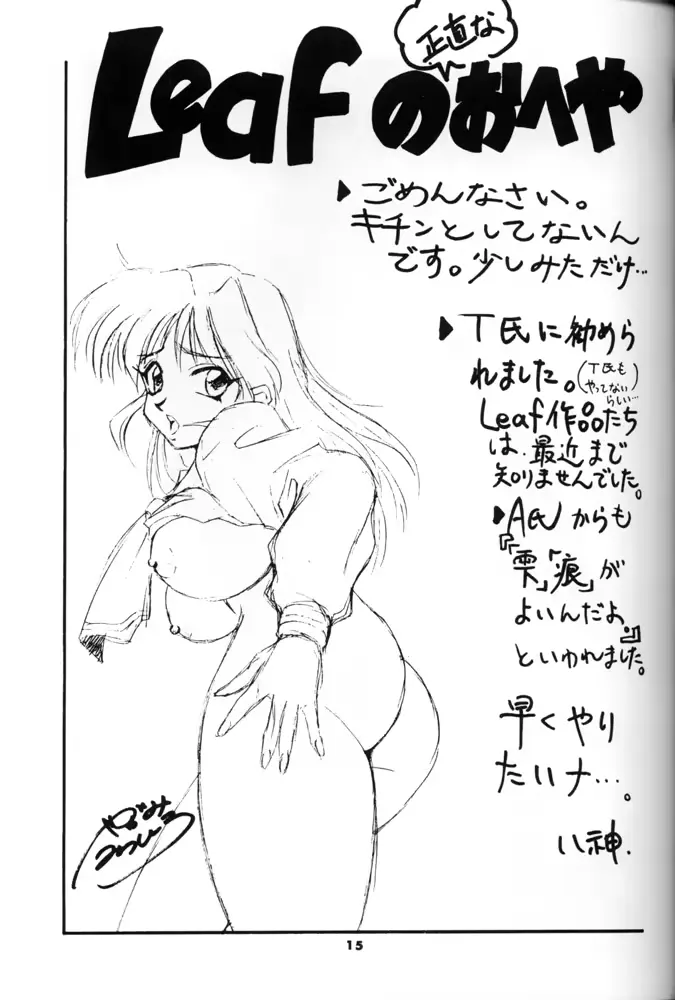 正直な
Leafのおへや
▶ごめんなさい。
キチンとしてないん
です。少しみただけ…
▶T氏に勧めら
れました。(T氏もやってないらしい…)
Leaf作品たち
は、最近まで
知りませんでした。
▶A氏からも
『「雫」「痕」が
よいんだよ。』
といわれました。
早くやり
たいナ…。
八神.
15